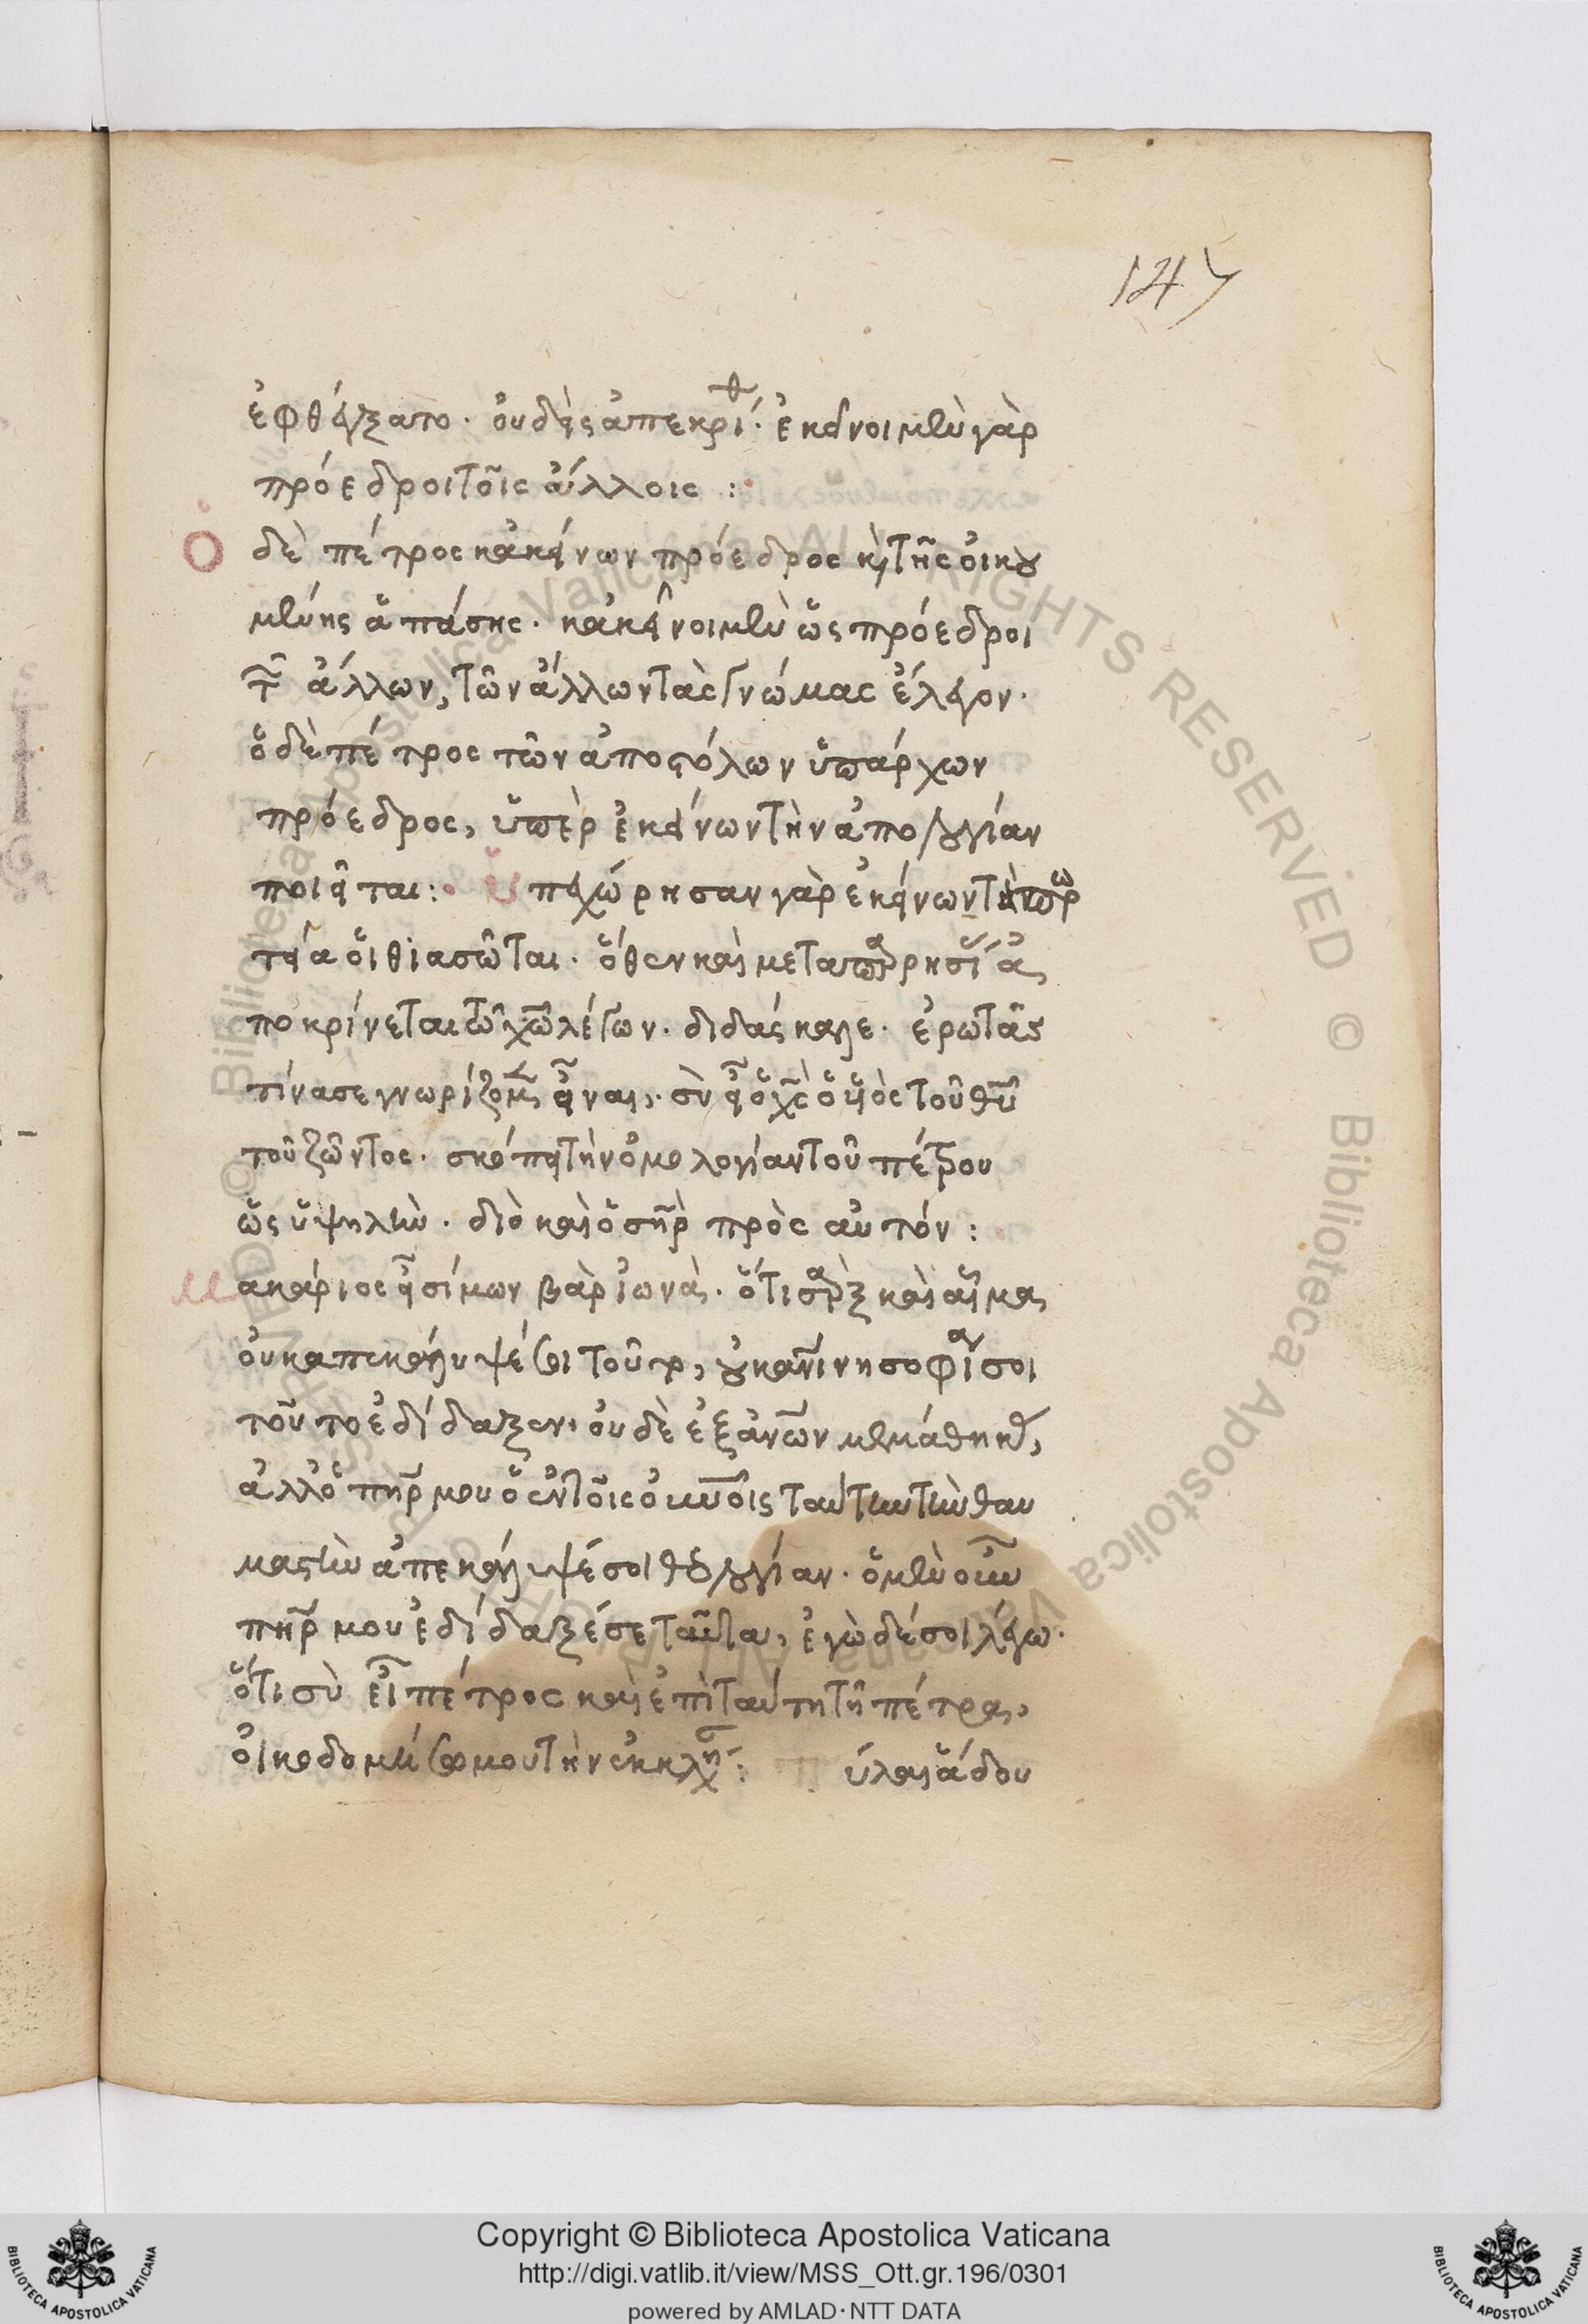 147
ἐφθέγξατο· οὐδεὶς ἀπεκρίθ· ἐκεῖνοι μὲν γὰρ
πρόεδροι τοῖς ἄλλοις :
Ὁ δὲ πέτρος κἀκείνων πρόεδρος κ(αὶ) τῆς οἰκου
μένης ἁπάσης· κἀκεῖνοι μὲν ὡς πρόεδροι
τῶν ἄλλων, τῶν ἄλλων τὰς γνώμας ἔλεγον·
ὁ δὲ πέτρος τῶν ἀποστόλων ὑπάρχων
πρόεδρος, ὑπὲρ ἐκείνων τὴν ἀπολογίαν
ποιεῖται : Ὑπεχώρησαν γὰρ ἐκείνων τὴν πρω
τεία οἱ θιασῶται· ὅθεν καὶ μετα παρρησίας ἀ
ποκρίνεται τῶ χῶ λέγων· διδάσκαλε· ἐρωτᾶς
τίνα σε γνωρίζομεν εἶναι, σὺ εἶ ὁ χς ὁ υἱὸς τοῦ θυ
τοῦ ζῶντος· σκόπει τὴν ὁμολογίαν τοῦ πέτρου
ὡς ὑψηλὴν· διὸ καὶ ὁ σηρ πρὸς αὐτόν :
Μακάριος εἶ σίμων βὰρ ἰωνὰ· ὅτι σαρξ καὶ αἷμα
οὐκ απεκάλυψέ σοι τοῦτο, οὐκ ανινη σοφία σοι
τοῦτο ἐδίδαξεν· οὐδὲ ἐξ ἀνων μεμάθηκας,
ἀλλ' ὁ πηρ μου ὁ ἐν τοῖς οὐνοῖς ταύτην τὴν θαυ
μαστὴν ἀπεκάλυψέ σοι θεολογίαν· ὁ μὲν οὖν
πηρ μου ἐδίδαξέ σε ταῦτα, ἐγὼ δέ σοι λέγω·
ὅτι σὺ εἶ πέτρος καὶ ἐπὶ ταύτη τῆ πέτρα,
οἰκοδομήσω μου τὴν ἐκκλησ : Πύλαι ἅδου
Copyright © Biblioteca Apostolica Vaticana
http://digi.vatlib.it/view/MSS_Ott.gr.196/0301
powered by AMLAD·NTT DATA